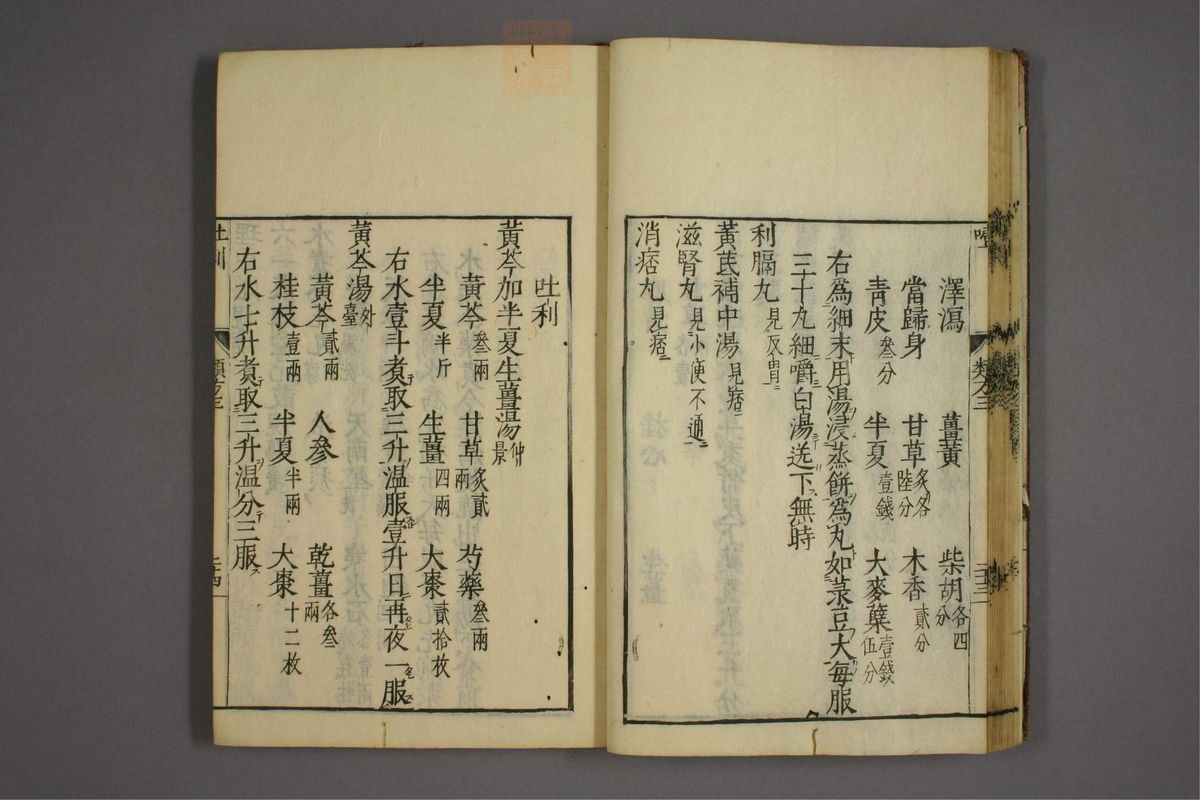 澤瀉 薑黃 柴胡各四分
當歸身 甘草炙各陸分 木香貳分
青皮叁分 半夏壹錢 大麥蘗壹錢伍分
右爲細末用湯浸蒸餅爲丸如菉豆大每服
三十丸細嚼白湯送下無時
利膈丸見反胃
黃芪補中湯見痞
滋腎丸見小便不通
消痞丸見痞
類方三
吐利
黃芩加半夏生薑湯仲景
黃芩叁兩 甘草炙貳兩 芍藥叁兩
半夏半斤 生薑四兩 大棗貳拾枚
右水壹斗煮取三升溫服壹升日再夜一服
黃芩湯外臺
黃芩貳兩 人參 乾薑各叁兩
桂枝壹兩 半夏半兩 大棗十二枚
右水七升煮取三升温分三服
吐利 類方三